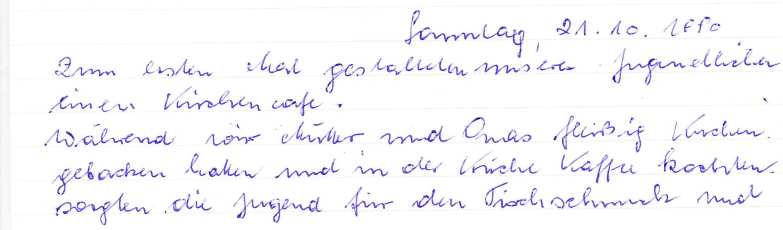 Sonntag, 21.10.1990
Zum ersten Mal gestalteten unsere Jugendlichen
einen Kirchencafe.
Während wir Mütter und Omas fleißig Kuchen
gebacken haben und in der Küche Kaffee kochten.
sorgten die Jugend für den Tischschmuck und